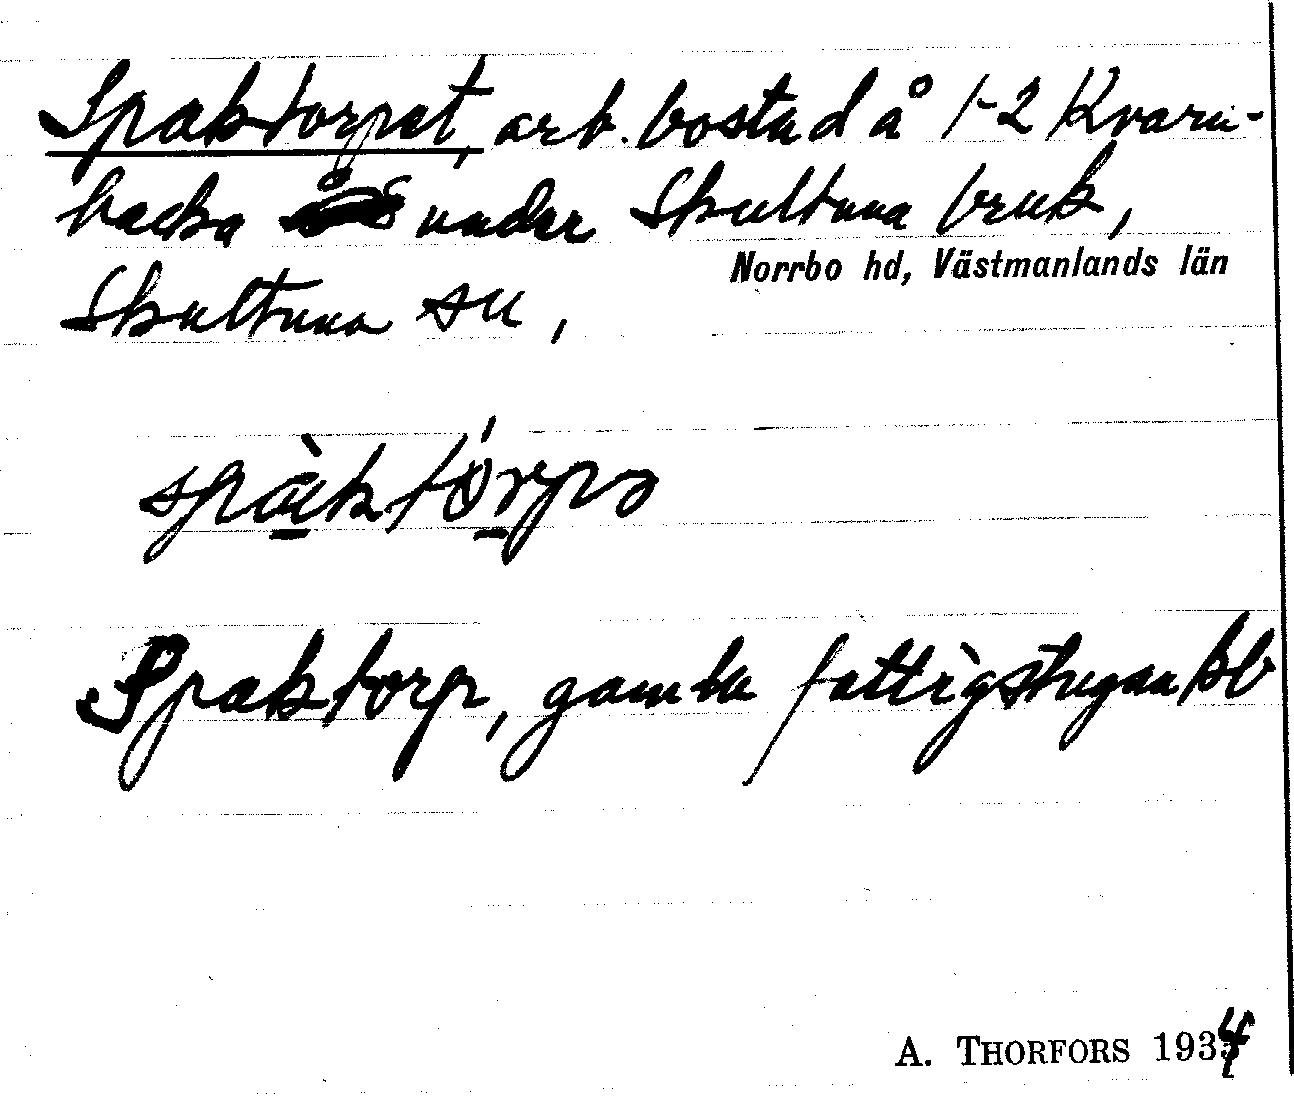 Spaktorpet, arb. bostad å 1-2 Kvarn-
backa under Skultuna bruk,
Norrbo hd, Västmanlands län
Skultuna sn,
spàktórpə
Spaktorp, gamla fattigstugan kb
A. THORFORS 1934